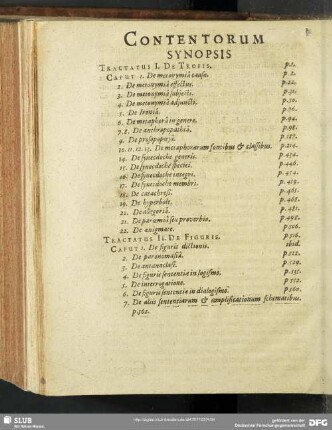 CONTENTORUM
SYNOPSIS
TRACTATUS I. DE TROPIS. p.1.
CAPUT 1. De metonymiâ causæ. p. 2.
2. De metonymiâ effectus. p.22.
3. De metonymiâ subjecti. p. 31.
4. De metonymiâ adjuncti. p.50.
5. De Ironiâ. p. 76.
6. De metaphorâ in genere. p. 94.
7.8. De anthropopathiâ. p. 98.
9. De prosopopœjâ. p. 187.
10. 11. 12. 13. De metaphorarum fontibus & classibus. p. 214.
14. De synecdoche generis. p. 434.
15. De synecdoche speciei. p. 446.
16. De synecdoche integri. p. 454.
17. De synecdoche membri. p.
18. De catachresi. p.
19. De hyperbole. p. 468.
20. De allegoriâ. p. 481.
21. De paroemiâ seu proverbio. p. 498.
22. De ænigmate. p. 506.
TRACTATUS II. DE FIGURIS. p. 516.
CAPUT 1. De figuris dictionis. ibid.
2. De paronomasiâ. p. 522.
3. De antanaclasi. p. 529.
4. De figuris sententiæ in logismo. p. 535.
5. De interrogatione. p. 552.
6. De figuris sententiæ in dialogismo. p. 560.
7. De aliis sententiarum & amplificationum schematibus.
p. 562.
SLUB
Wir führen Wissen.
gefördert von der
Deutschen Forschungsgemeinschaft
DFG